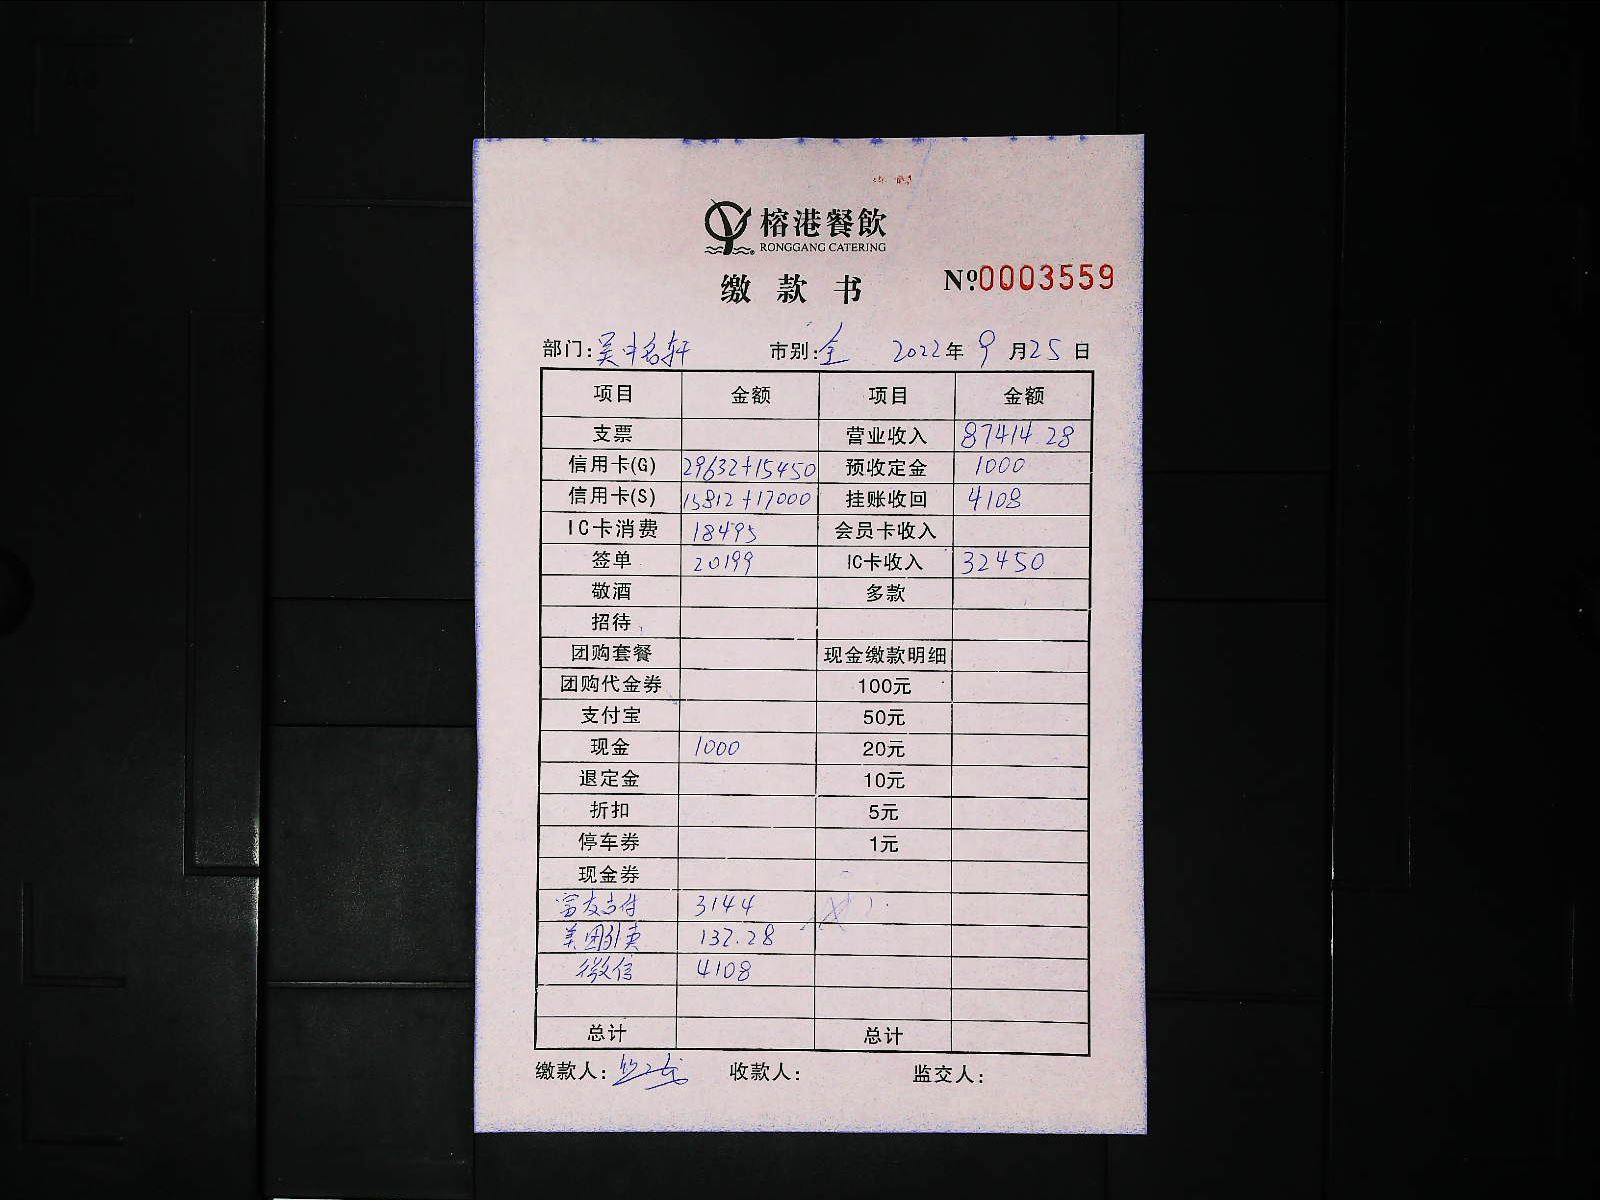 榕港餐飲
RONGGANG CATERING
缴款书
№0003559
部门:吴中名轩 市别:全 2022年9月25日
项目 金额 项目 金额
支票 营业收入 87414.28
信用卡(G) 29632+15450 预收定金 1000
信用卡(S) 15812+17000 挂账收回 4108
IC卡消费 18495 会员卡收入
签单 20199 IC卡收入 32450
敬酒 多款
招待
团购套餐 现金缴款明细
团购代金券 100元
支付宝 50元
现金 1000 20元
退定金 10元
折扣 5元
停车券 1元
现金券
富友支付 3144
美团外卖 132.28
微信 4108
总计 总计
缴款人: 收款人: 监交人: